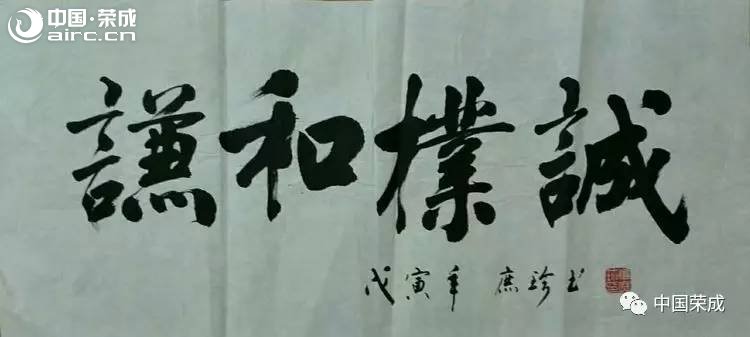 中国·荣成
airc.cn
謙和樸誠
戊寅年 珍书
中国荣成